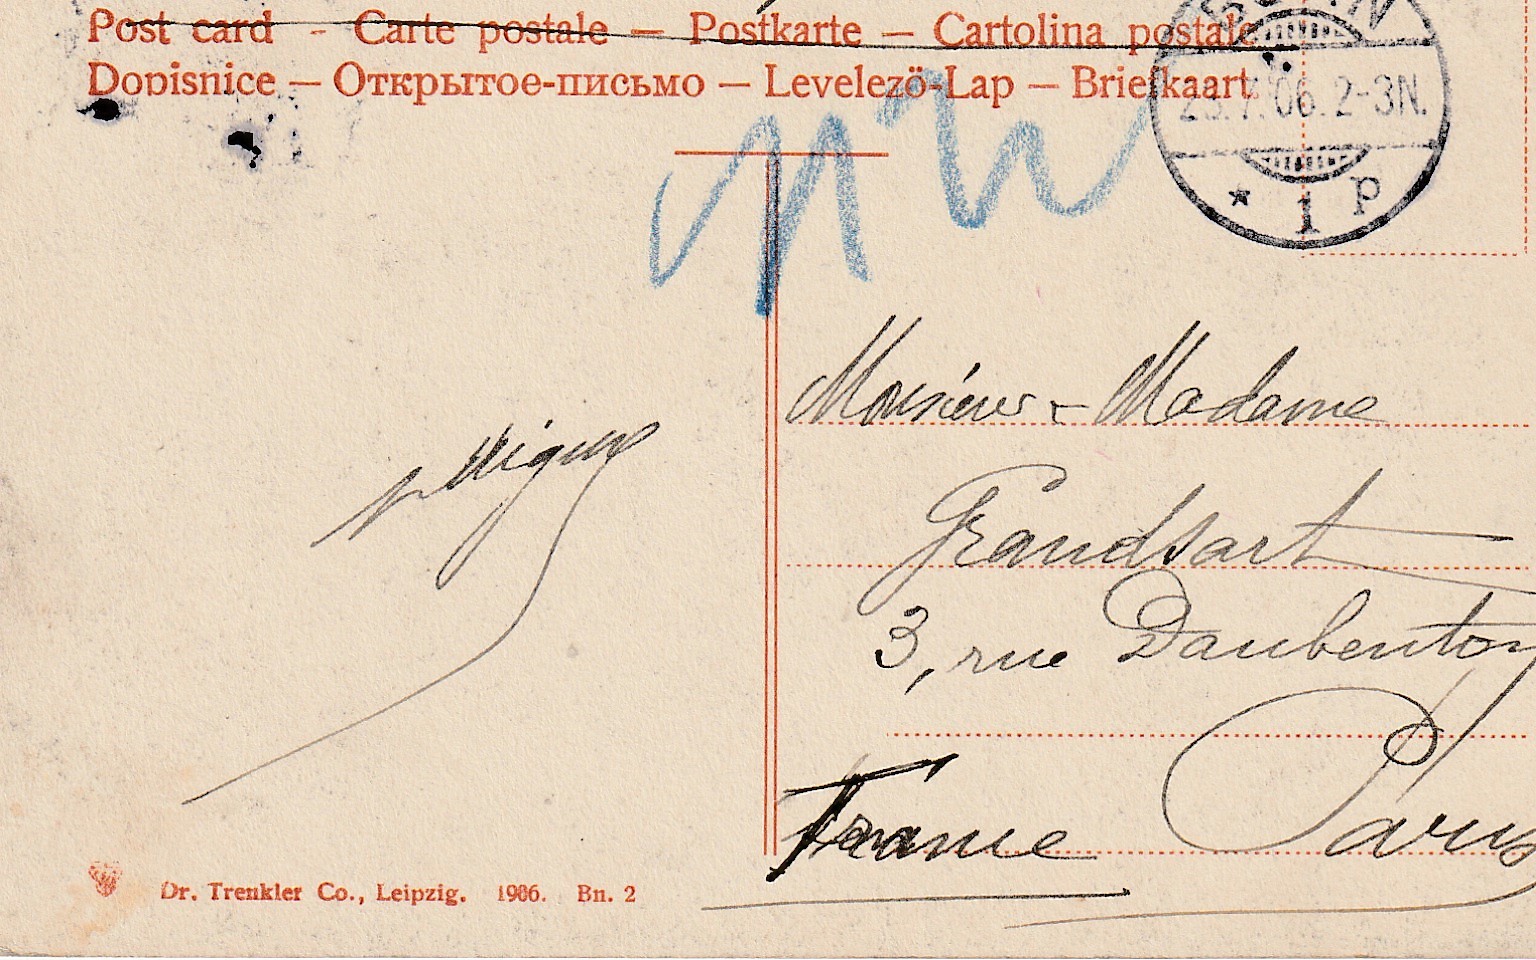 Post card - Carte postale — Postkarte — Cartolina postale
Dopisnice — Открытое-письмо — Levelezö-Lap — Briefkaart
23.7.06.2-3N.
* 1 p
Monsieur & Madame
Grandsart
3, rue Daubenton
Paris
France
Dr. Trenkler Co., Leipzig. 1906. Bn. 2